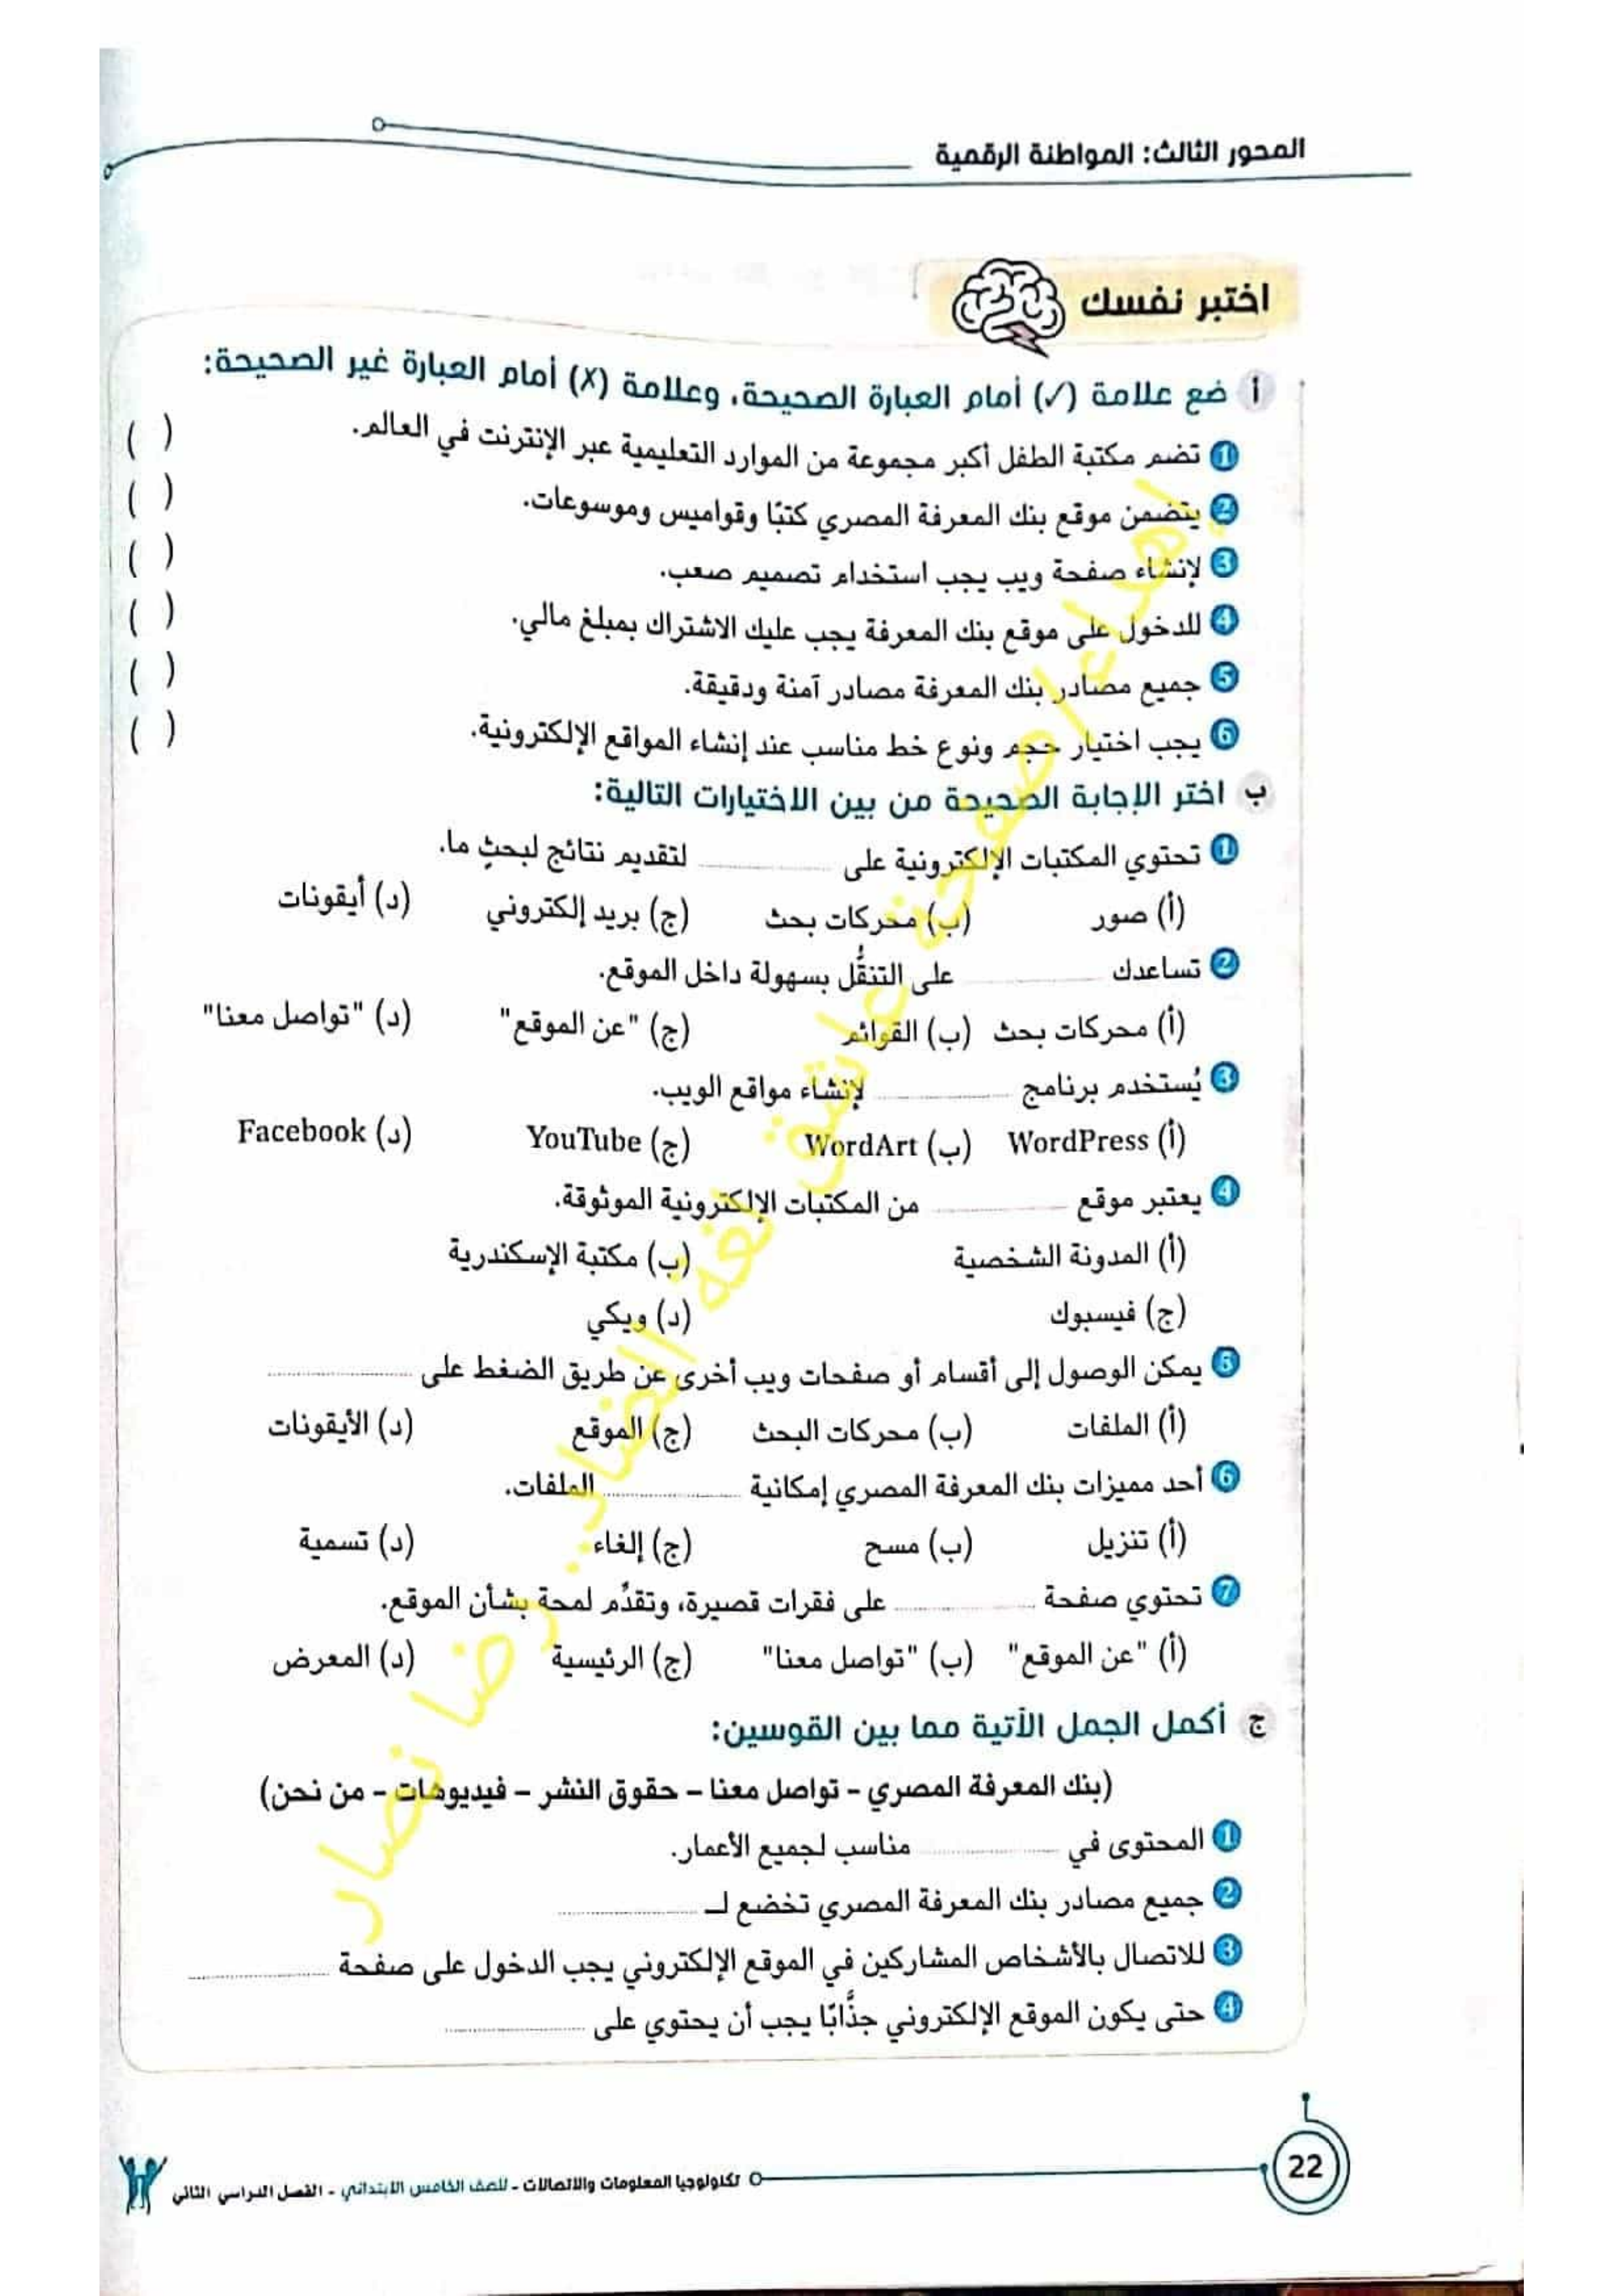 المحور الثالث: المواطنة الرقمية
اختبر نفسك
أ ضع علامة (✓) أمام العبارة الصحيحة، وعلامة (✗) أمام العبارة غير الصحيحة:
1 تضم مكتبة الطفل أكبر مجموعة من الموارد التعليمية عبر الإنترنت في العالم. ( )
2 يتضمن موقع بنك المعرفة المصري كتبًا وقواميس وموسوعات. ( )
3 لإنشاء صفحة ويب يجب استخدام تصميم صعب. ( )
4 للدخول على موقع بنك المعرفة يجب عليك الاشتراك بمبلغ مالي. ( )
5 جميع مصادر بنك المعرفة مصادر آمنة ودقيقة. ( )
6 يجب اختيار حجم ونوع خط مناسب عند إنشاء المواقع الإلكترونية. ( )
ب اختر الإجابة الصحيحة من بين الاختيارات التالية:
1 تحتوي المكتبات الإلكترونية على .......... لتقديم نتائج لبحثٍ ما.
(أ) صور (ب) محركات بحث (ج) بريد إلكتروني (د) أيقونات
2 تساعدك .......... على التنقُّل بسهولة داخل الموقع.
(أ) محركات بحث (ب) القوائم (ج) "عن الموقع" (د) "تواصل معنا"
3 يُستخدم برنامج .......... لإنشاء مواقع الويب.
(أ) WordPress (ب) WordArt (ج) YouTube (د) Facebook
4 يعتبر موقع .......... من المكتبات الإلكترونية الموثوقة.
(أ) المدونة الشخصية (ب) مكتبة الإسكندرية
(ج) فيسبوك (د) ويكي
5 يمكن الوصول إلى أقسام أو صفحات ويب أخرى عن طريق الضغط على ..........
(أ) الملفات (ب) محركات البحث (ج) الموقع (د) الأيقونات
6 أحد مميزات بنك المعرفة المصري إمكانية .......... الملفات.
(أ) تنزيل (ب) مسح (ج) إلغاء (د) تسمية
7 تحتوي صفحة .......... على فقرات قصيرة، وتقدِّم لمحة بشأن الموقع.
(أ) "عن الموقع" (ب) "تواصل معنا" (ج) الرئيسية (د) المعرض
ج أكمل الجمل الآتية مما بين القوسين:
(بنك المعرفة المصري – تواصل معنا – حقوق النشر – فيديوهات – من نحن)
1 المحتوى في .......... مناسب لجميع الأعمار.
2 جميع مصادر بنك المعرفة المصري تخضع لـ ..........
3 للاتصال بالأشخاص المشاركين في الموقع الإلكتروني يجب الدخول على صفحة ..........
4 حتى يكون الموقع الإلكتروني جذَّابًا يجب أن يحتوي على ..........
إهداء/صفحة عاشق لغة الضاد.. رضا نصار
22
تكنولوجيا المعلومات والاتصالات - للصف الخامس الابتدائي - الفصل الدراسي الثاني